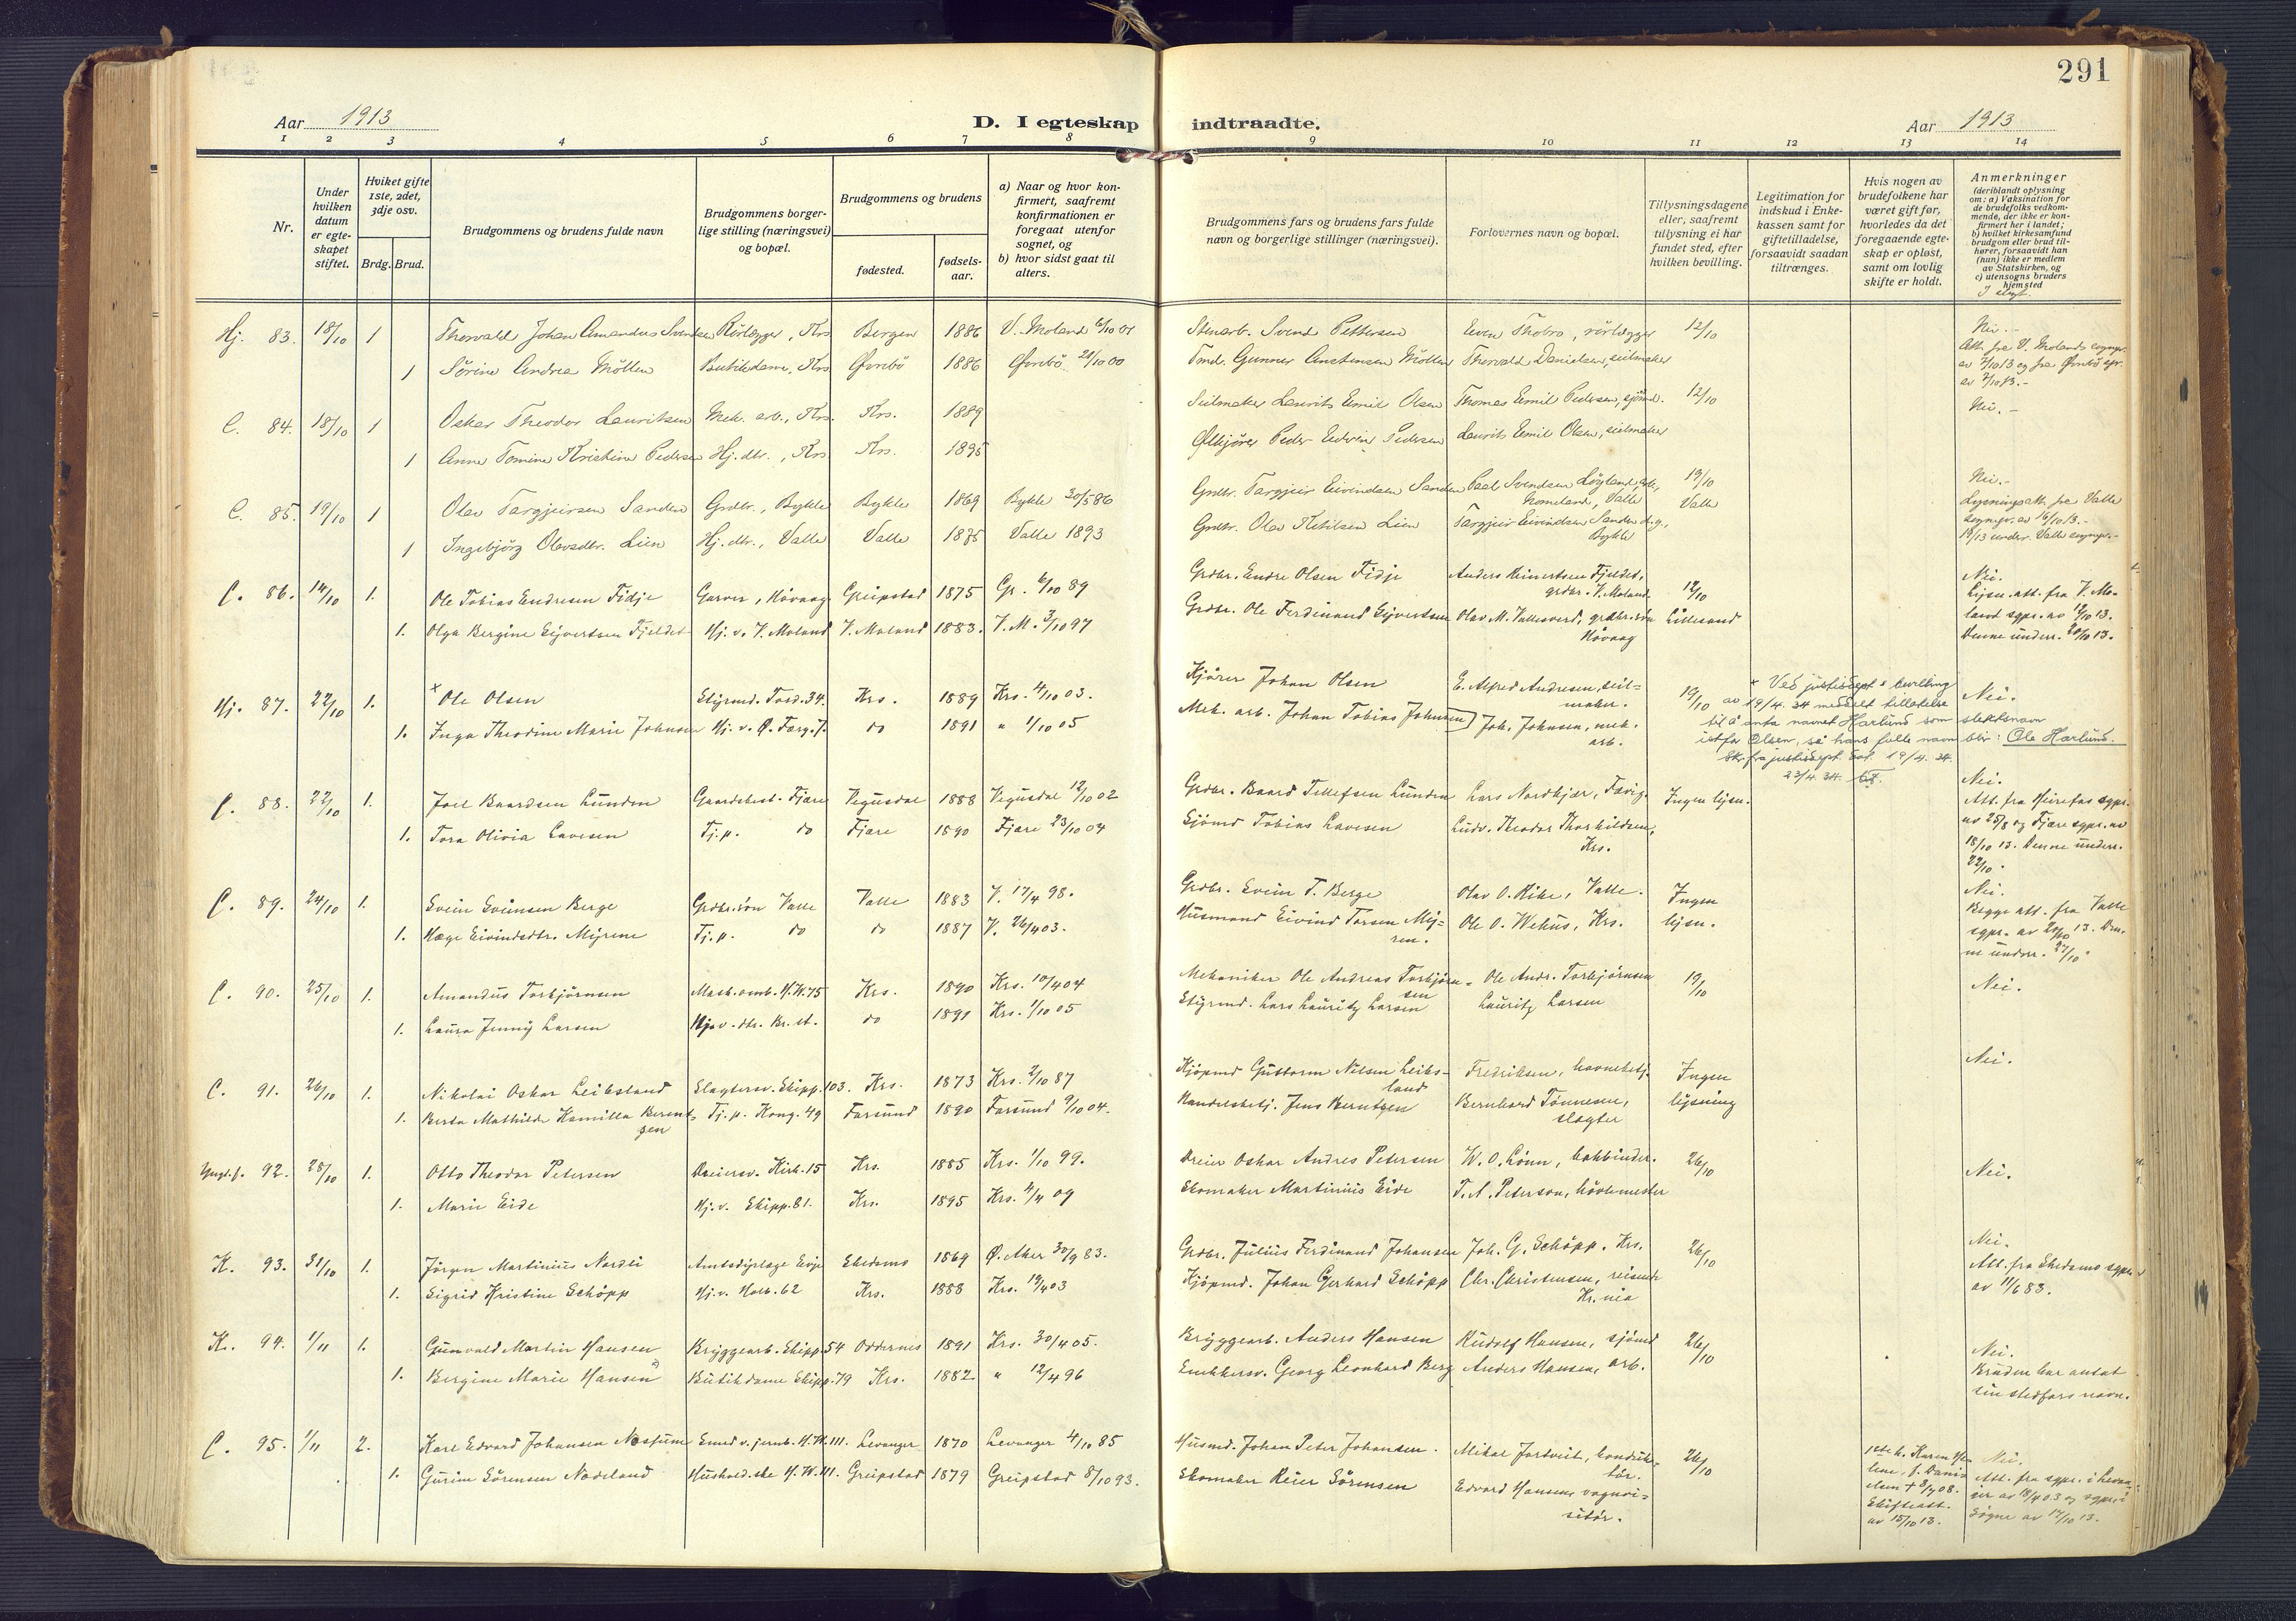 291
Aar 1913
D. I egteskap indtraadte.
Aar 1913
1 2 3 4 5 6 7 8 9 10 11 12 13 14
Nr.
Under hvilken datum er egteskapet stiftet.
Hviket gifte 1ste, 2det, 3dje osv.
Brdg. Brud.
Brudgommens og brudens fulde navn
Brudgommens borgerlige stilling (næringsvei) og bopæl.
Brudgommens og brudens
fødested.
fødselsaar.
a) Naar og hvor konfirmert, saafremt konfirmationen er foregaat utenfor sognet, og
b) hvor sidst gaat til alters.
Brudgommens fars og brudens fars fulde navn og borgerlige stillinger (næringsvei).
Forlovernes navn og bopæl.
Tillysningsdagene eller, saafremt tillysning ei har fundet sted, efter hvilken bevilling.
Legitimation for indskud i Enkekassen samt for giftetilladelse, forsaavidt saadan tiltrænges.
Hvis nogen av brudefolkene har været gift før, hvorledes da det foregaaende egteskap er opløst, samt om lovlig skifte er holdt.
Anmerkninger (deriblandt oplysning om: a) Vaksination for de brudefolks vedkommende, der ikke er konfirmert her i landet; b) hvilket kirkesamfund brudgom eller brud tilhører, forsaavidt han (hun) ikke er medlem av Statskirken, og c) utensogns bruders hjemsted
I slegt.
Hj. 83. 18/10 1 Thorvald Johan Amandus Svendsen Rørlægger, Krs Bergen 1886 V. Moland 6/10 01 Stenarb. Svend Pettersen Even Thobro, rørlægger 12/10 Nei.-
1 Sørine Andrea Møllen Butikdame, Krs Øvrebø 1886 Øvrebø 21/10 00 Tmd. Gunner Anstensen Møllen Thorvald Danielsen, seilmaker Att. fra V. Molands sognepr. av 7/10 13 og fra Øvrebø spr. av 7/10 13.-
C. 84. 18/10 1 Oskar Theodor Lauritsen Mek. arb., Krs. Krs. 1889 Seilmaker Laurits Emil Olsen Thomas Emil Pedersen, sjømd. 12/10 Nei.-
1 Anne Tomine Kristine Pedersen Hj. dtr., Krs Krs. 1895 Ølkjører Peder Edvin Pedersen Laurits Emil Olsen, seilmaker
C. 85. 19/10 1 Olav Targjeirsen Sanden Grdbr., Bykle Bykle 1869 Bykle 30/5 86 Grdbr. Targjeir Eivindsen Sanden Paal Svendsen Løyland, Homeland, Valle 19/10 Valle Nei.-
1 Ingebjørg Olavsdtr. Lien Hj. dtr., Valle Valle 1875 Valle 1893 Grdbr. Olav Ketilsen Lien Targjeir Eivindsen Sanden d.g., Bykle Lysningsatt. fra Valle sognepr. av 16/10 13.- 19/13 underr. Valle sognepr.-
C. 86. 14/10 1. Ole Tobias Endresen Fidje Garver, Høvaag Greipstad 1875 Gr. 6/10 89 Grdbr. Endre Olsen Fidje Anders Reinertsen Fjeldet, grdbr. V. Moland 12/10 Nei.
1. Olga Bergine Sijvertsen Fjeldet Hj. v. V. Moland V. Moland 1883. V. M. 3/10 97 Grdbr. Ole Ferdinand Sijvertsen Olav M. Vallesverd, grdbr. søn Høvaag Lillesand Lysn. att. fra V. Moland sgpr. av 12/10 13. Denne underr. 20/10 13.
Hj. 87. 22/10 1. × Ole Olsen Styrmd. Tord. 34. Krs. 1889 Krs. 4/10 03. Kjører Johan Olsen E. Alfred Andresen, seilmaker. 19/10 Nei.
1. Inga Theodine Marie Johnsen Hj. v. Ø. Færg. 7. do 1891 " 1/10 05 Mek. arb. Johan Tobias Johnsen Joh. Johnsen, mek. arb.
× Ved justisdept's bevilling av 19/4. 34 meddelt tillatelse til å anta navnet Harlund som slektsnavn istfor Olsen, så hans fulle navn blir: Ole Harlund. Skr. fra justisdept. dat. 19/4. 34. 23/4. 34.
C. 88. 22/10 1. Joel Baardsen Lunden Gaardsbest. Fjære Vegusdal 1888 Vegusdal 12/10 02 Grdbr. Baard Tellefsen Lunden Lars Nordkjær, Færvig. Ingen lysn. Nei.
1. Tora Olivia Lavesen Tj. p. do Fjære 1890 Fjære 23/10 04 Sjømd Tobias Lavesen Ludv. Theodor Thorkildsen, Krs. Att. fra Herefos sgpr. av 25/8 og Fjære sgpr. av 18/10 13. Denne underr. 22/10.
C. 89. 24/10 1. Svein Sveinsen Berge Grdbr. søn Valle Valle 1883 V. 17/4 98. Grdbr. Svein T. Berge Olav O. Rike, Valle. Ingen lysn. Nei.
1. Hæge Eivindsdtr. Myrene Tj. p. do do 1887 V. 26/4 03. Husmand Eivind Torsen Myren. Ole O. Wehus, Krs. Begge att. fra Valle sgpr. av 20/10 13. Denne underr. 27/10.
C. 90. 25/10 1. Amandus Torbjørnsen Mask. omb. H. W. 75 Krs. 1890 Krs. 10/4 04 Mekaniker Ole Andreas Torbjørnsen Ole Andr. Torbjørnsen 19/10 Nei.
1. Laura Jenny Larsen Hjv. dtr. Br. st. do 1891 Krs. 1/10 05 Styrmd. Lars Lauritz Larsen Lauritz Larsen
C. 91. 26/10 1. Nikolai Oskar Leibsland Slagtersv. Skipp. 103. Krs. 1873 Krs. 2/10 87 Kjøpmd Guttorm Nilsen Leibsland Fredriksen, havnebetj. Ingen lysning Nei.
1. Berta Mathilde Kamilla Berentzen Tj. p. Kong. 49 Farsund 1890 Farsund 9/10 04. Handelsbetj. Jens Berntzen Bernhard Tønnesen, slagter
92. 28/10 1. Otto Theodor Petersen Dreiersv. Kirk. 15 Krs. 1885 Krs. 1/10 99. Dreier Oskar Andres Petersen W. O. Lønn, bokbinder. 26/10 Nei.
1. Marie Eide Hj. v. Skipp. 81. Krs. 1895 Krs. 4/4 09 Skomaker Martinius Eide T. A. Peterson, hovmester
K. 93. 31/10 1. Jörgen Martinius Nordli Amtsdyrlæge Evje Skedsmo 1869 Ø. Aker 30/9 83. Grdbr. Julius Ferdinand Johansen Joh. G. Schöpp. Krs. 26/10 Nei.
1. Sigrid Kristine Schöpp Hj. v. Holb. 62 Krs. 1888 Krs. 19/4 03 Kjöpmd. Johan Gerhard Schöpp Chr. Christensen, reisende Kr.nia Att. fra Skedsmo sgpr. av 11/6 83.
K. 94. 1/11 1. Gunvald Martin Hansen Bryggearb. Skipp. 54 Oddernes 1891 Krs. 30/4 05. Bryggearb. Anders Hansen Rudolf Hansen, sjömd 26/10 Nei.
1. Bergine Marie Hansen Butikdame Skipp. 79 Krs. 1882 " 12/4 96 Snekkersv. Georg Leonhard Berg Anders Hansen, arb. Bruden har antat sin stedfars navn.
C. 95. 1/11 2. Karl Edvard Johansen Nossum Smed v. jernb. H. W. 111. Levanger 1870 Levanger 4/10 85 Husmd. Johan Peter Johansen. Mikal Jortveit, konduktør. 26/10 Nei.
1. Gurine Sörensen Nodeland Hushold.ske H. W. 111. Greipstad 1879 Greipstad 8/10 93. Skomaker Reier Sörensen Edvard Hansen, vognvisitør.
1ste h. Karen f. Danielsen † 3/7 08. Skifteatt. av 15/10 13.
Att. fra sgpr. i Levanger av 18/4 03 og sgpr. i Søgne av 14/10 13.